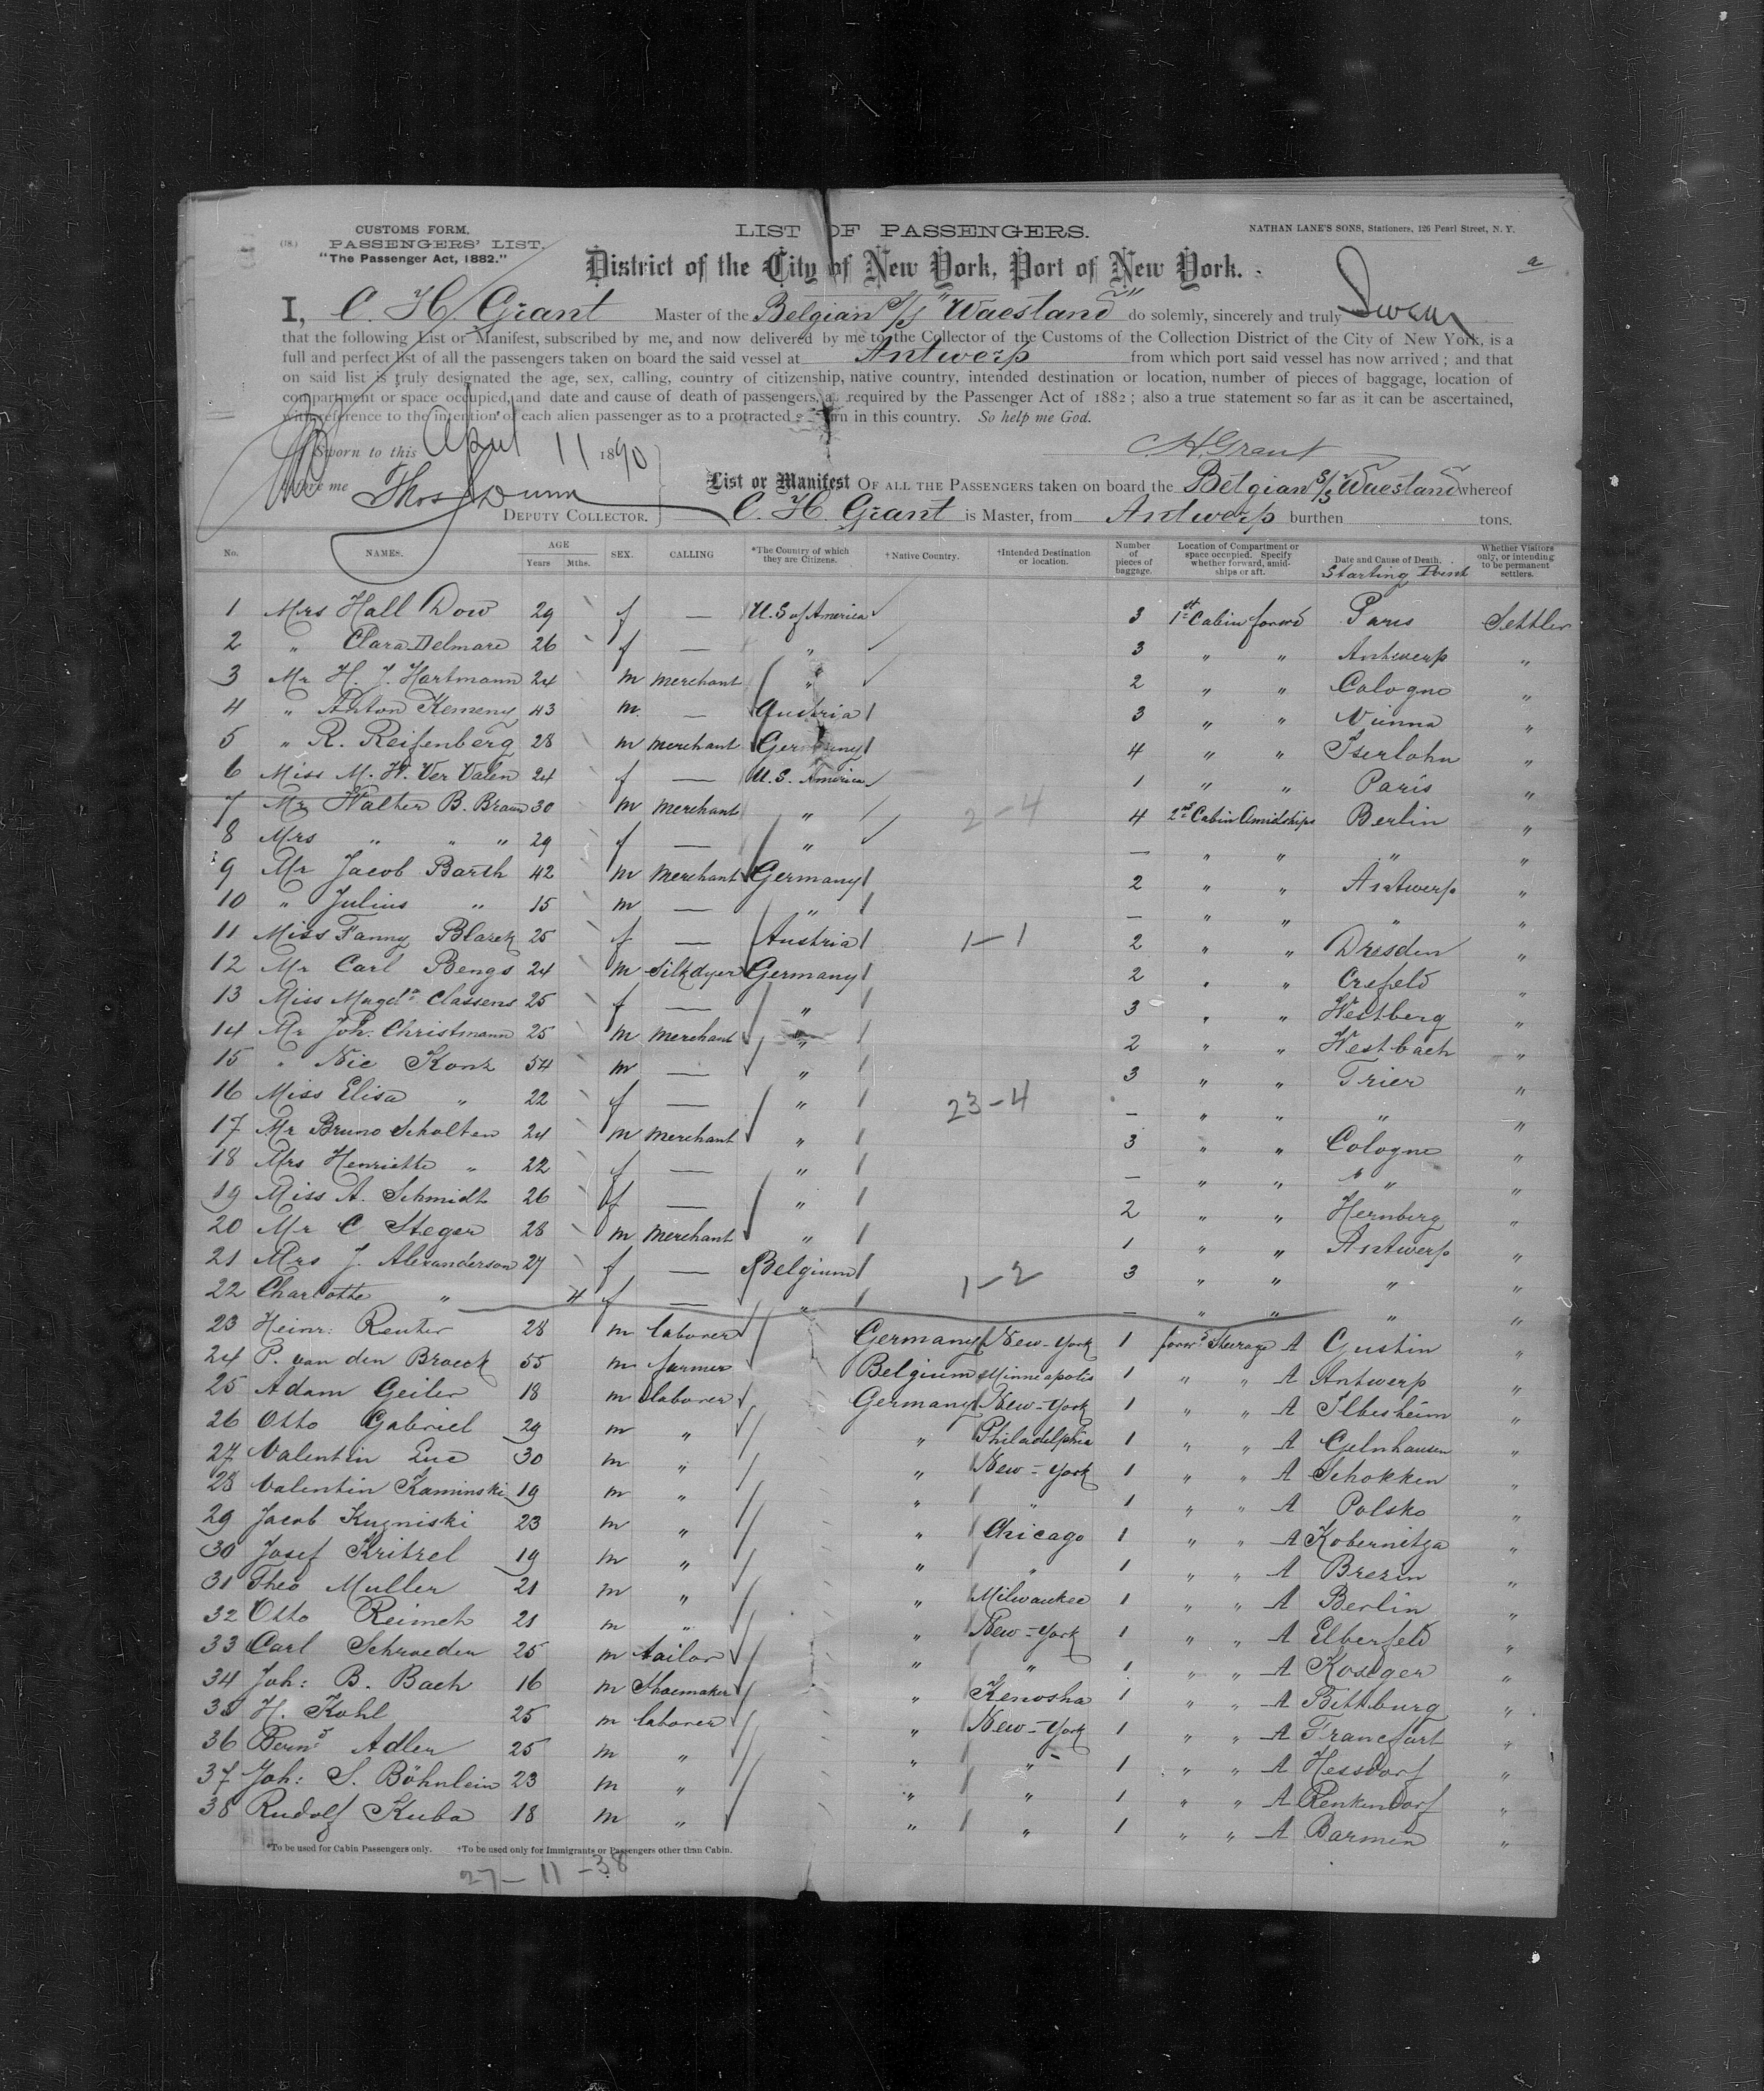 CUSTOMS FORM.
(18.) PASSENGERS' LIST.
"The Passenger Act, 1882."
LIST OF PASSENGERS.
NATHAN LANE'S SONS, Stationers, 126 Pearl Street, N. Y.
a
District of the City of New York, Port of New York.
I, C. H. Grant Master of the Belgian S/S "Waesland" do solemnly, sincerely and truly Swear
that the following List or Manifest, subscribed by me, and now delivered by me to the Collector of the Customs of the Collection District of the City of New York, is a
full and perfect list of all the passengers taken on board the said vessel at Antwerp from which port said vessel has now arrived; and that
on said list is truly designated the age, sex, calling, country of citizenship, native country, intended destination or location, number of pieces of baggage, location of
compartment or space occupied, and date and cause of death of passengers, as required by the Passenger Act of 1882; also a true statement so far as it can be ascertained,
with reference to the intention of each alien passenger as to a protracted in this country. So help me God.
Sworn to this April 11 1890
C H. Grant
before me Thos Dunn
DEPUTY COLLECTOR.
List or Manifest OF ALL THE PASSENGERS taken on board the Belgian S/S Waesland whereof
C. H. Grant is Master, from Antwerp burthen tons.
No. NAMES. AGE Years Mths. SEX. CALLING *The Country of which they are Citizens. †Native Country. †Intended Destination or location. Number of pieces of baggage. Location of Compartment or space occupied. Specify whether forward, amidships or aft. Date and Cause of Death. Starting Point Whether Visitors only, or intending to be permanent settlers.
1 Mrs Hall Dow 29 f — U.S of America 3 1st Cabin forwd Paris Settler
2 " Clara Delmare 26 f — " 3 " " Antwerp "
3 Mr H. J. Hartmann 24 m merchant " 2 " " Cologne "
4 " Anton Kemeny 43 m. — Austria 3 " " Vienna "
5 " R. Reifenberg 28 m merchant Germany 4 " " Iserlohn "
6 Miss M. W. Ver Valen 24 f — U.S. America 1 " " Paris "
7 Mr Walter B. Braun 30 m merchant " 2-4 4 2nd Cabin Amidships Berlin "
8 Mrs " " " 29 f — " — " " " "
9 Mr Jacob Barth 42 m merchant Germany 2 " " Antwerp "
10 " Julius " 15 m — " — " " " "
11 Miss Fanny Blazek 25 f — Austria 1-1 2 " " Dresden "
12 Mr Carl Bengs 24 m Silkdyer Germany 2 " " Crefeld "
13 Miss Magdna Classens 25 f — " 3 " " Westberg "
14 Mr Joh. Christmann 25 m merchant " 2 " " Westbach "
15 " Nic Konz 54 m — " 3 " " Trier "
16 Miss Elisa " 22 f — " 23-4 — " " " "
17 Mr Bruno Scholten 24 m merchant " 3 " " Cologne "
18 Mrs Henriette " 22 f — " — " " " "
19 Miss A. Schmidt 26 f — " 2 " " Hernberg "
20 Mr C Steger 28 m merchant " 1 " " Antwerp "
21 Mrs J. Alexanderson 27 f — Belgium 1-2 3 " " " "
22 Charlotte " 4 f — " — " " " "
23 Heinr. Reuter 28 m laborer Germany New-York 1 forwd Steerage A Gustin "
24 P. van den Broeck 55 m farmer Belgium Minneapolis 1 " " A Antwerp "
25 Adam Geiler 18 m laborer Germany New-York 1 " " A Ilbesheim "
26 Otto Gabriel 29 m " " Philadelphia 1 " " A Gelnhausen "
27 Valentin Luc 30 m " " New-York 1 " " A Schokken "
28 Valentin Kaminski 19 m " " " 1 " " A Polsko "
29 Jacob Kuzniski 23 m " " Chicago 1 " " A Kobernitza "
30 Josef Kritzel 19 m " " " 1 " " A Brezin "
31 Theo Muller 21 m " " Milwaukee 1 " " A Berlin "
32 Otto Reimch 21 m " " New-York 1 " " A Elberfeld "
33 Carl Schroeder 25 m tailor " " 1 " " A Kosiger "
34 Joh: B. Bach 16 m Shoemaker " Kenosha 1 " " A Bittburg "
35 H. Kohl 25 m laborer " New-York 1 " " A Francfurt "
36 Bernd Adler 25 m " " " 1 " " A Hessdorf "
37 Joh: S. Böhnlein 23 m " " " 1 " " A Renkendorf "
38 Rudolf Kuba 18 m " " " 1 " " A Barmen "
*To be used for Cabin Passengers only. †To be used only for Immigrants or Passengers other than Cabin.
27-11-38